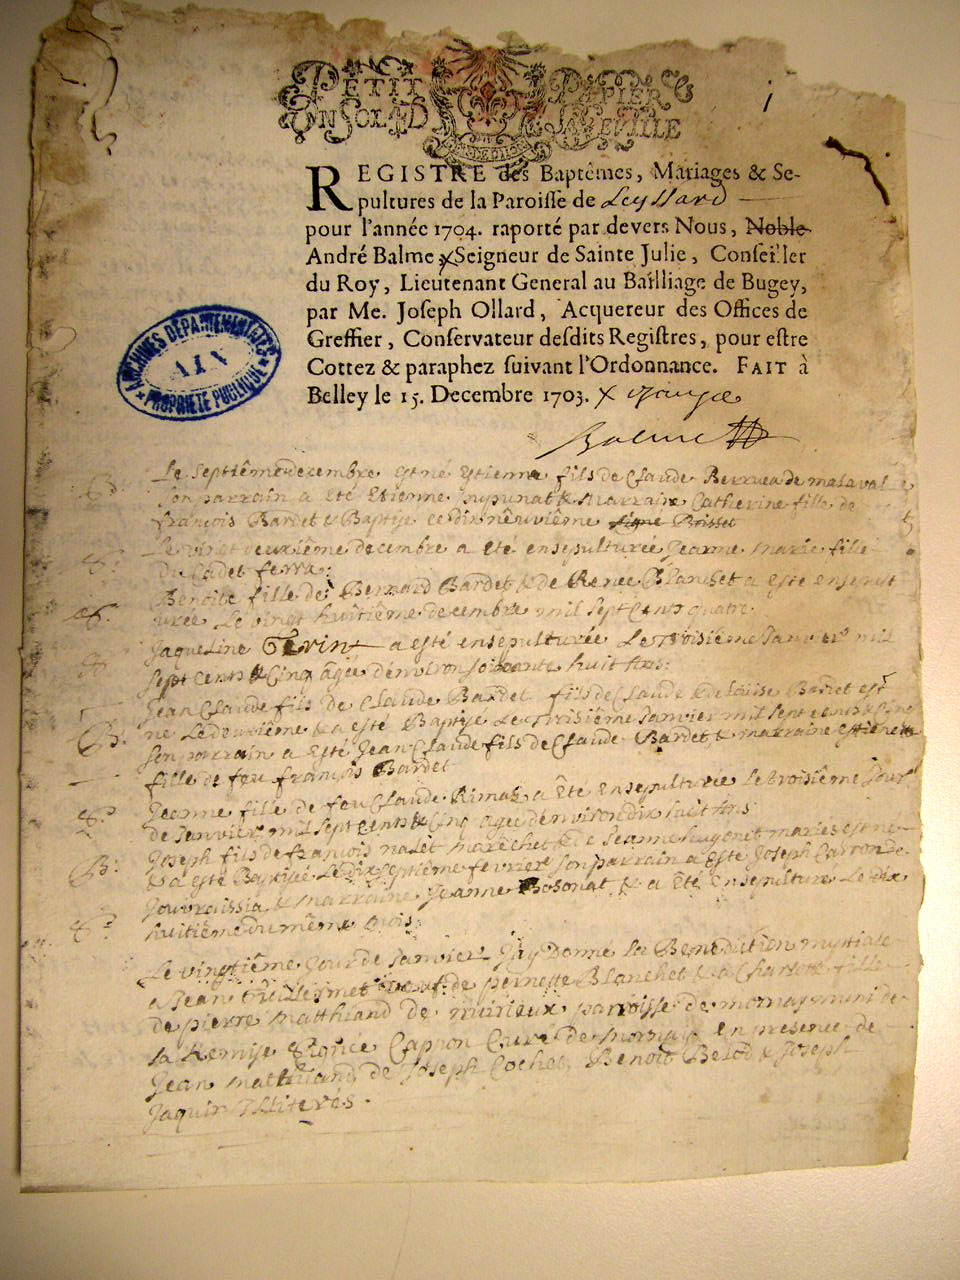 PETIT PAPIER
UN SOL 4 D LA FEUILLE
REGISTRE des Baptêmes, Mariages & Se-
pultures de la Paroisse de Leyssard
pour l'année 1704. raporté par devers Nous, Noble
André Balme Seigneur de Sainte Julie, Conseiller
du Roy, Lieutenant General au Bailliage de Bugey,
par Me. Joseph Ollard, Acquereur des Offices de
Greffier, Conservateur desdits Registres, pour estre
Cottez & paraphez suivant l'Ordonnance. FAIT à
Belley le 15. Decembre 1703.
Balme
ARCHIVES DÉPARTEMENTALES
AIN
PROPRIÉTÉ PUBLIQUE
Le septiême decembre est né Estienne fils de Claude de malaval
son parrain a eté Etienne & Marraine Catherine fille de
françois Bardet & Baptise ce dit neuvième signe Brisset
Le vint deuxième decembre a eté ensepulturée Jeanne Marie fille
du Cadet ferra:
Benoite fille de Bernard Bardet & de Renee Blanchet a esté ensepult
urée Le vingt huitième decembre mil sept cents quatre
Jaqueline Tevint a esté ensepulturée Le troisième Janvier mil
sept cents & Cinq agée d'environ soixante huit Ans:
Jean Claude fils de Claude Bardet fils de Claude & de loüise Bardet est
né Le deuxième & a esté Baptise Le troisième Janvier mil sept cents & Cinq
son parrain a esté Jean Claude fils de Claude Bardet & marraine estienette
fille de feu françois Bardet
Jeanne fille de feu Claude Rimas a êté ensepulturée Le troisième Jour
de Janvier mil sept cents & Cinq agée d'environ dix huit Ans
Joseph fils de françois nalet marechet & de Jeanne hugonet mariés est né
& a esté Baptisée Le dix septième fevrier son parrain a esté Joseph Carron de
Jouvraissia & marraine Jeanne Bosonat & a êté ensepulturé Le dix
huitième du même mois
Le vingtième Jour de Janvier J'ay Donné La Benediction nuptiale
a Jean Guillermet veuf de pernette Blanchet & a Charlotte fille
de pierre Matthiand de mirieux parroisse de mornay muni de
la Remise signée Cappon Curé de Mornay en presence de
Jean matthiand de Joseph Cochet, Benoit Belod & Joseph
Jaquin Illiterés.